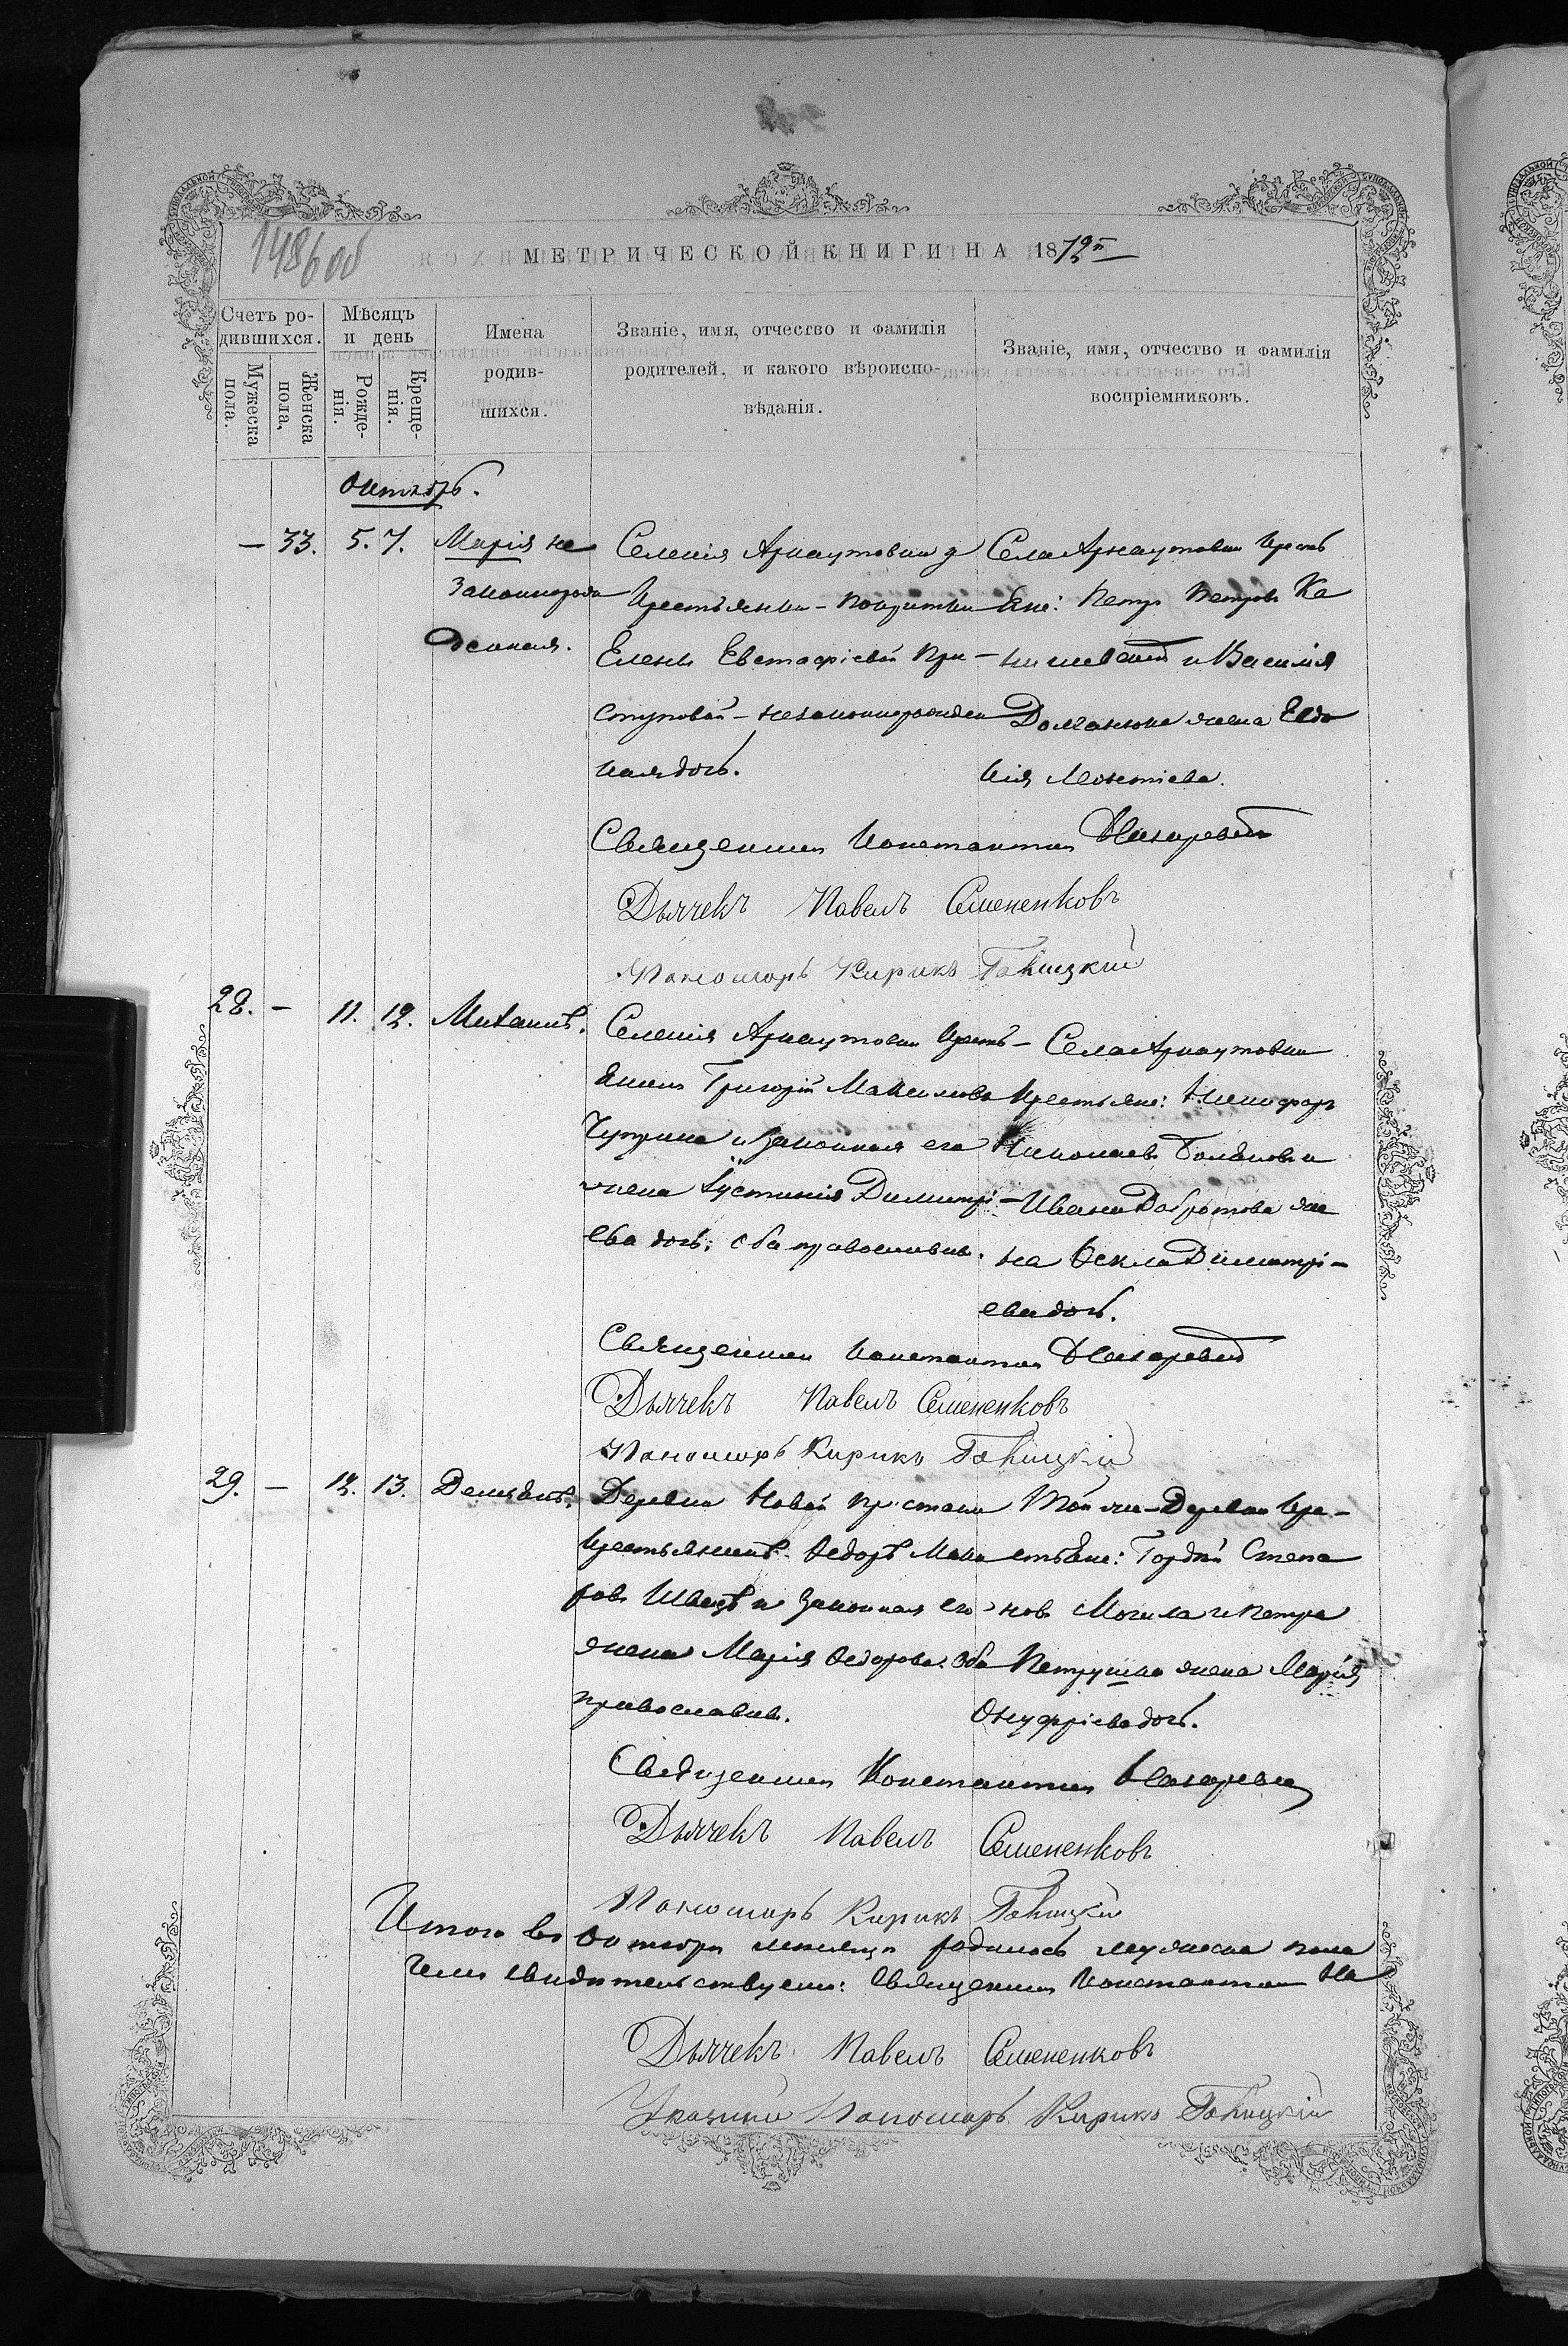 148 об
МЕТРИЧЕСКОЙ КНИГИ НА 1872й
Счетъ ро-
дившихся.
Мужеска
пола.
Женска
пола,
Мѣсяцъ
и день
Рожде-
нія.
Креще-
нія.
Имена
родив-
шихся.
Званіе, имя, отчество и фамилія
родителей, и какого вѣроиспо-
вѣданія.
Званіе, имя, отчество и фамилія
воспріемниковъ.
Октябрь.
— 33. 5. 7.
Марія не
законнорож
денная.
Селенія Арнаутовки
крестьянки - покритки
Елены Евстафіевой При-
ступовой - незаконнорожден
ная дочь.
Села Арнаутовки крестъ
яне: Петръ Петровъ Ка
и Василія
жена Евдо
кія Леонтіева.
Священникъ Константинъ Назаревичъ
Дьячекъ Павелъ Семененковъ
Пономарь Кирикъ
28. — 11. 12.
Михаилъ.
Селенія Арнаутовки крестъ-
янинъ Григорій Максимовъ
и законная его
жена Іустинія Димитрі-
ева дочь; оба православнаго.
Села Арнаутовки
крестьяне: Никифоръ
Николаевъ и
Ивана Добротова же
на Ѳекла Димитрі-
ева дочь.
Священникъ Константинъ Назаревичъ
Дьячекъ Павелъ Семененковъ
Пономарь Кирикъ
29. — 12. 13.
Демьянъ.
Деревни Новой Пристани
крестьянинъ Ѳедоръ Мака
ровъ Швецъ и законная его
жена Марія Ѳедорова. Оба
православнаго.
Той же Деревни кре-
стьяне: Гордѣй Степа
новъ Могила и Петра
Петрушка жена Марія
Онуфріева дочь.
Священникъ Константинъ Назаревичъ
Дьячекъ Павелъ Семененковъ
Пономарь Кирикъ
Итого въ Октябрѣ мѣсяцѣ родилось мужеска пола
Чемъ свидѣтельствуемъ: Священникъ Константинъ На
Дьячекъ Павелъ Семененковъ
Пономарь Кирикъ